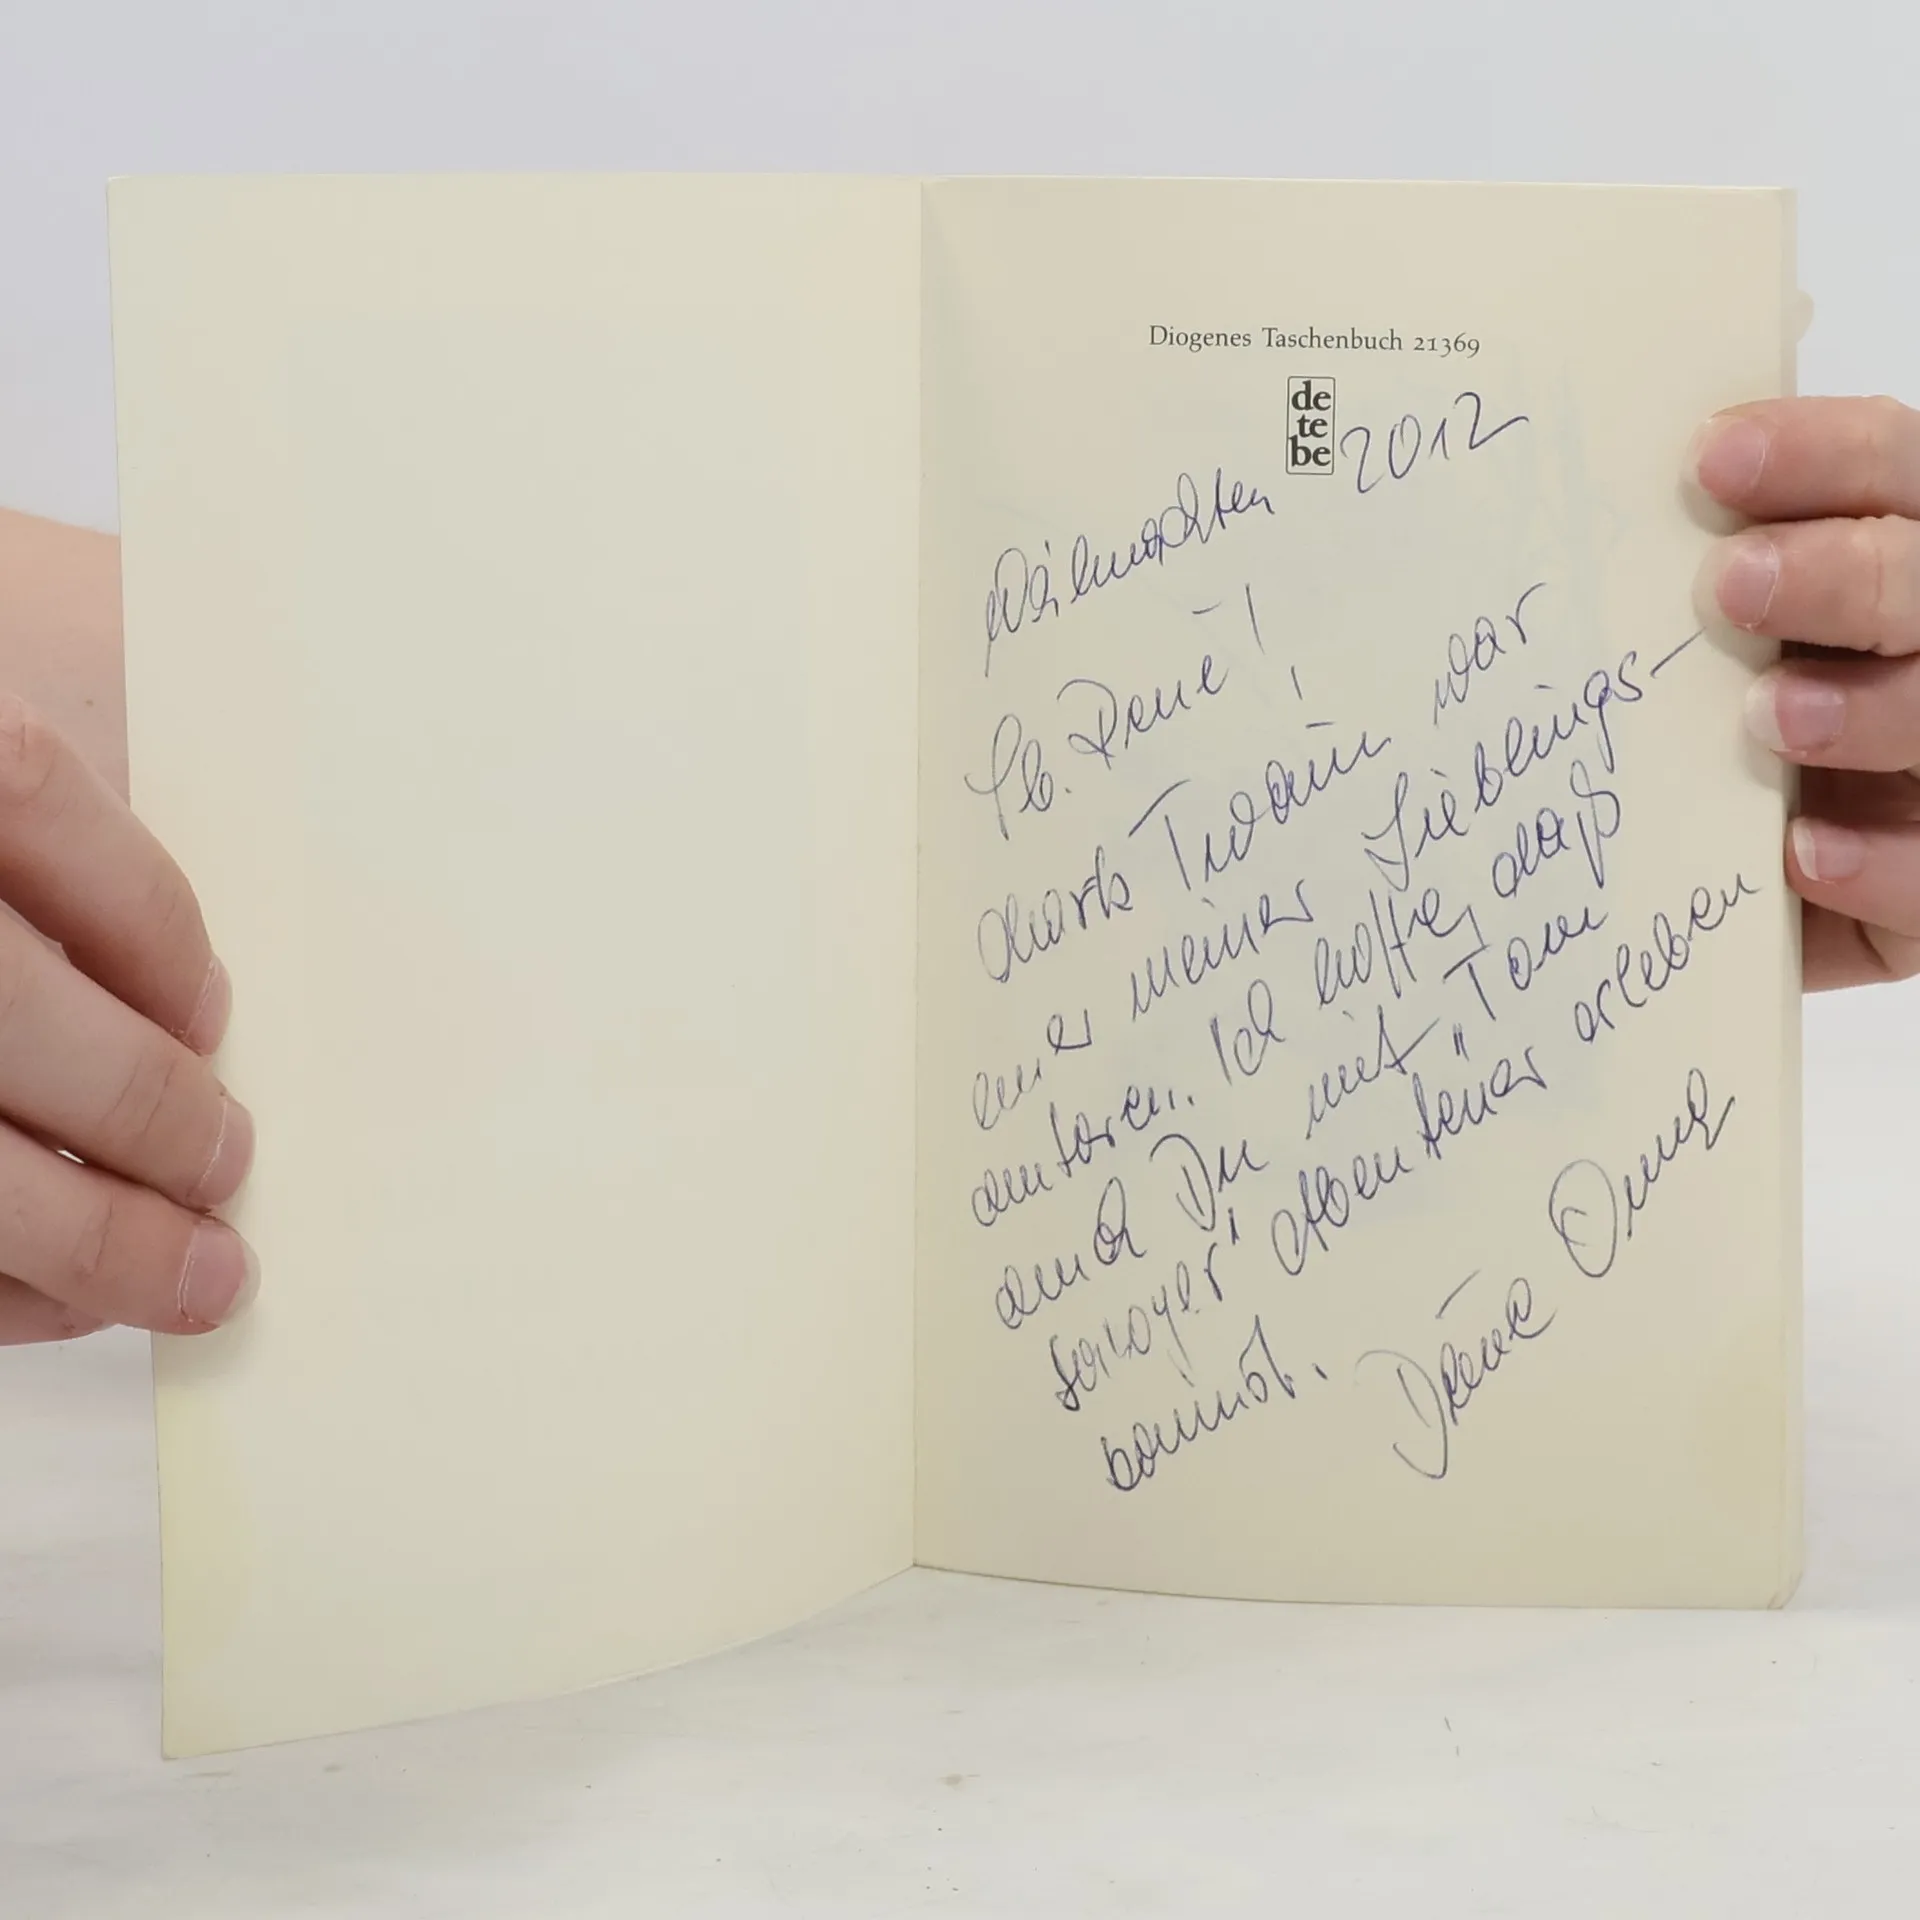 Diogenes Taschenbuch 21369
de
te
be
Weihnachten 2012
Lb. René!
Mark Twain war
einer meiner Lieblings-
autoren. Ich hoffe, daß
auch Du mit "Tom
Sawyer" Abenteuer erleben
kannst.
Deine Oma